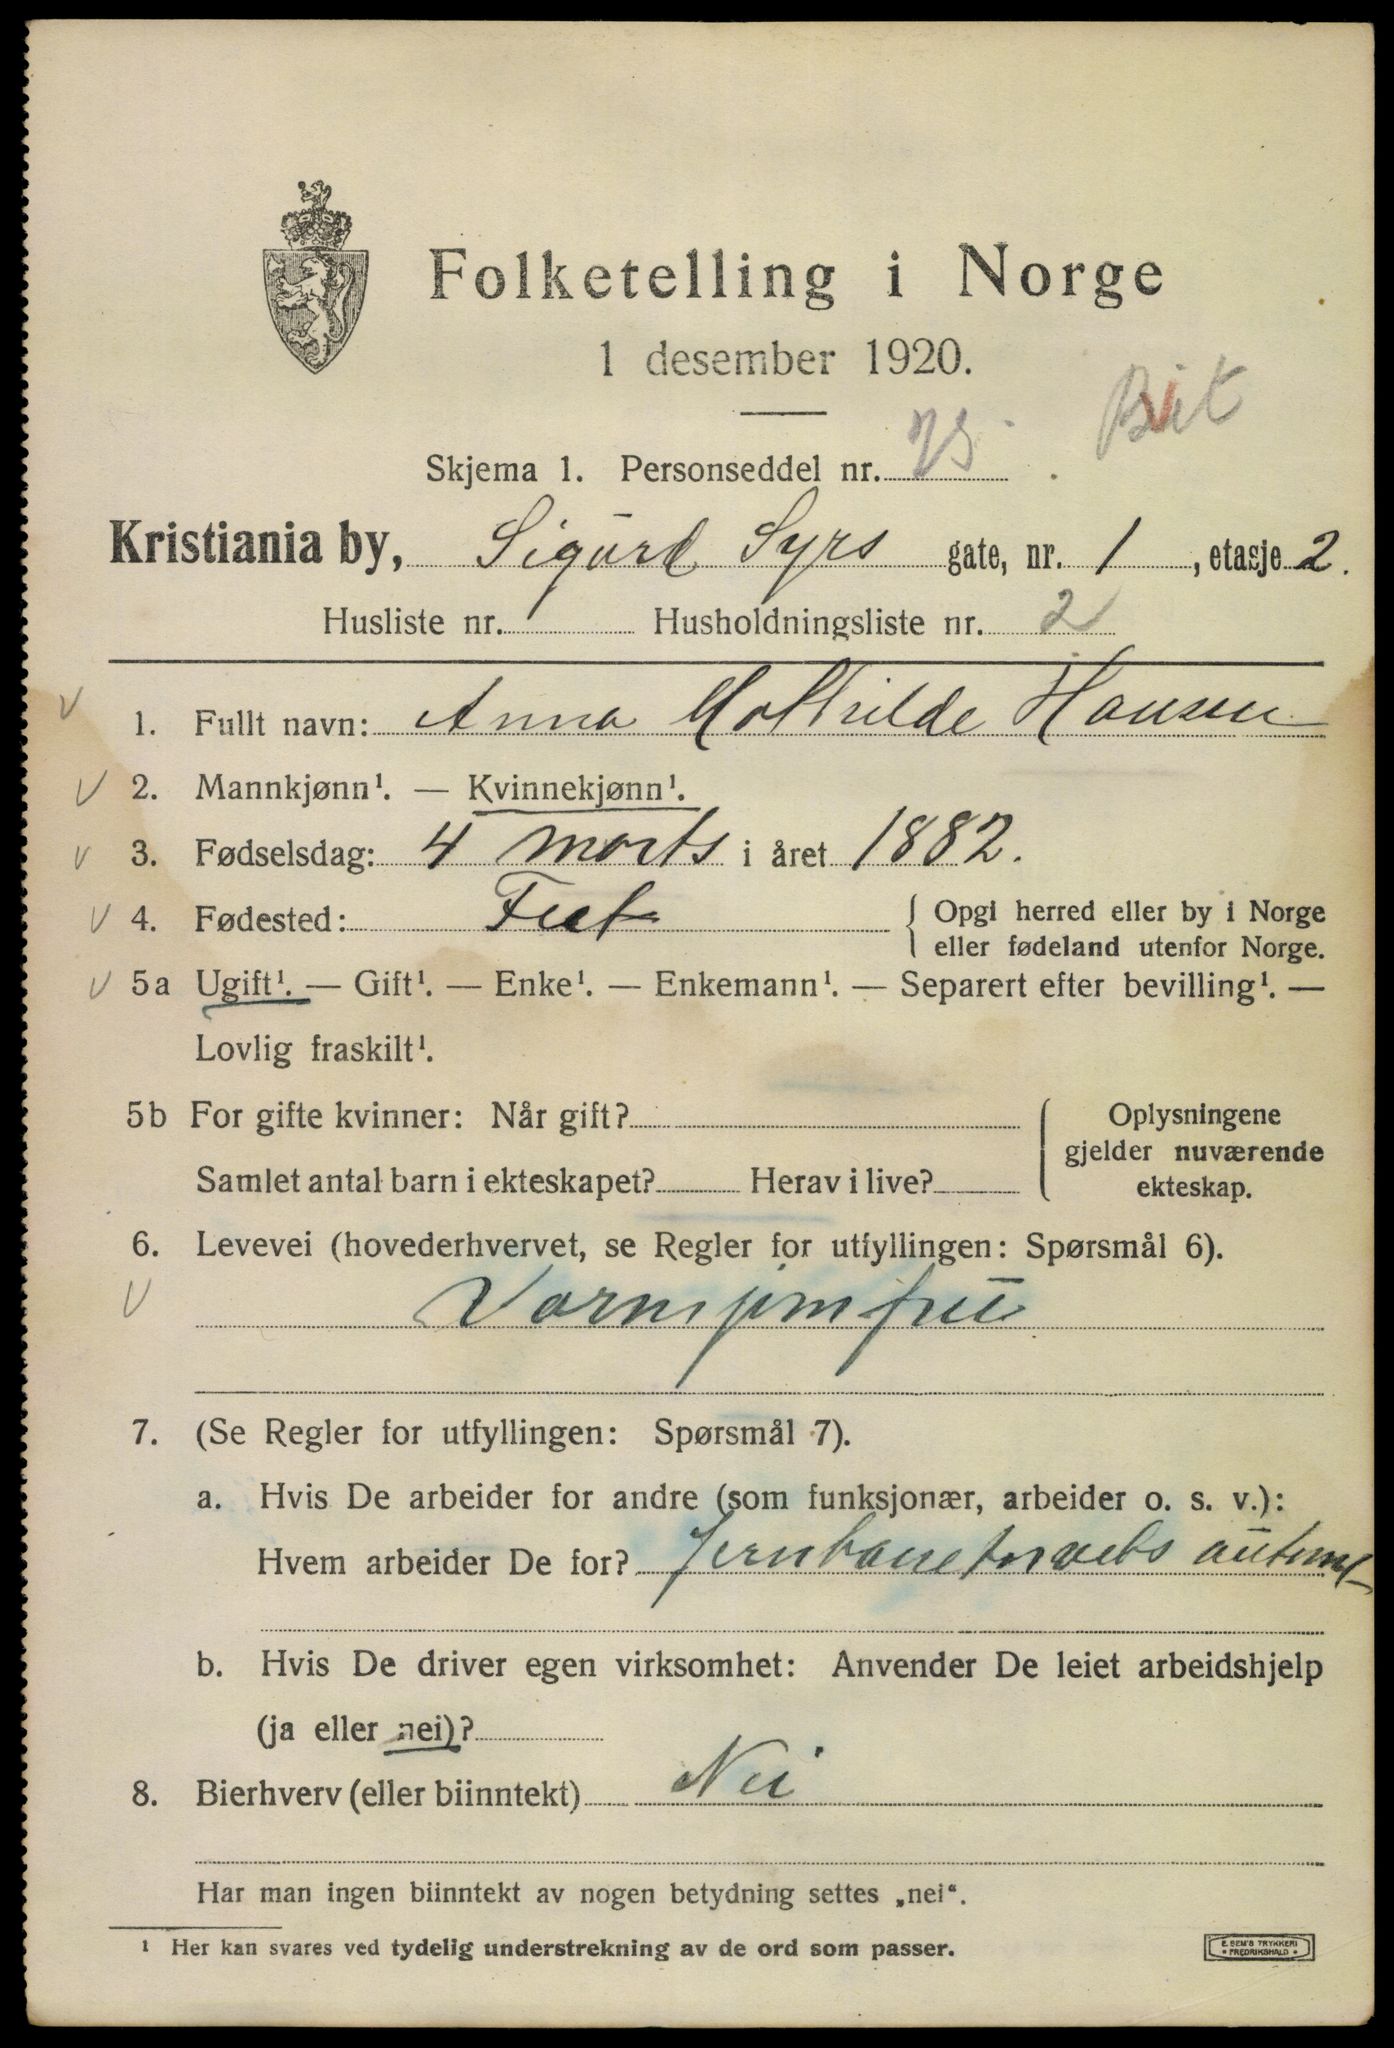 Folketelling i Norge
1 desember 1920.
Skjema 1. Personseddel nr.
Kristiania by, Sigurd Syrs gate, nr. 1, etasje 2.
Husliste nr. Husholdningsliste nr. 2
1. Fullt navn: Anna Mathilde Hansen
2. Mannkjønn¹. — Kvinnekjønn¹.
3. Fødselsdag: 4 marts i året 1882.
4. Fødested: Fet { Opgi herred eller by i Norge
eller fødeland utenfor Norge.
5a Ugift¹. — Gift¹. — Enke¹. — Enkemann¹. — Separert efter bevilling¹. —
Lovlig fraskilt¹.
5b For gifte kvinner: Når gift?
Samlet antal barn i ekteskapet? Herav i live?
{ Oplysningene
gjelder nuværende
ekteskap.
6. Levevei (hovederhvervet, se Regler for utfyllingen: Spørsmål 6).
Varmjomfru
7. (Se Regler for utfyllingen: Spørsmål 7).
a. Hvis De arbeider for andre (som funksjonær, arbeider o. s. v.):
Hvem arbeider De for? Jernbanetorvets automat
b. Hvis De driver egen virksomhet: Anvender De leiet arbeidshjelp
(ja eller nei)?
8. Bierhverv (eller biinntekt) Nei
Har man ingen biinntekt av nogen betydning settes „nei“.
¹ Her kan svares ved tydelig understrekning av de ord som passer.
E. SEM'S TRYKKERI
• FREDRIKSHALD •